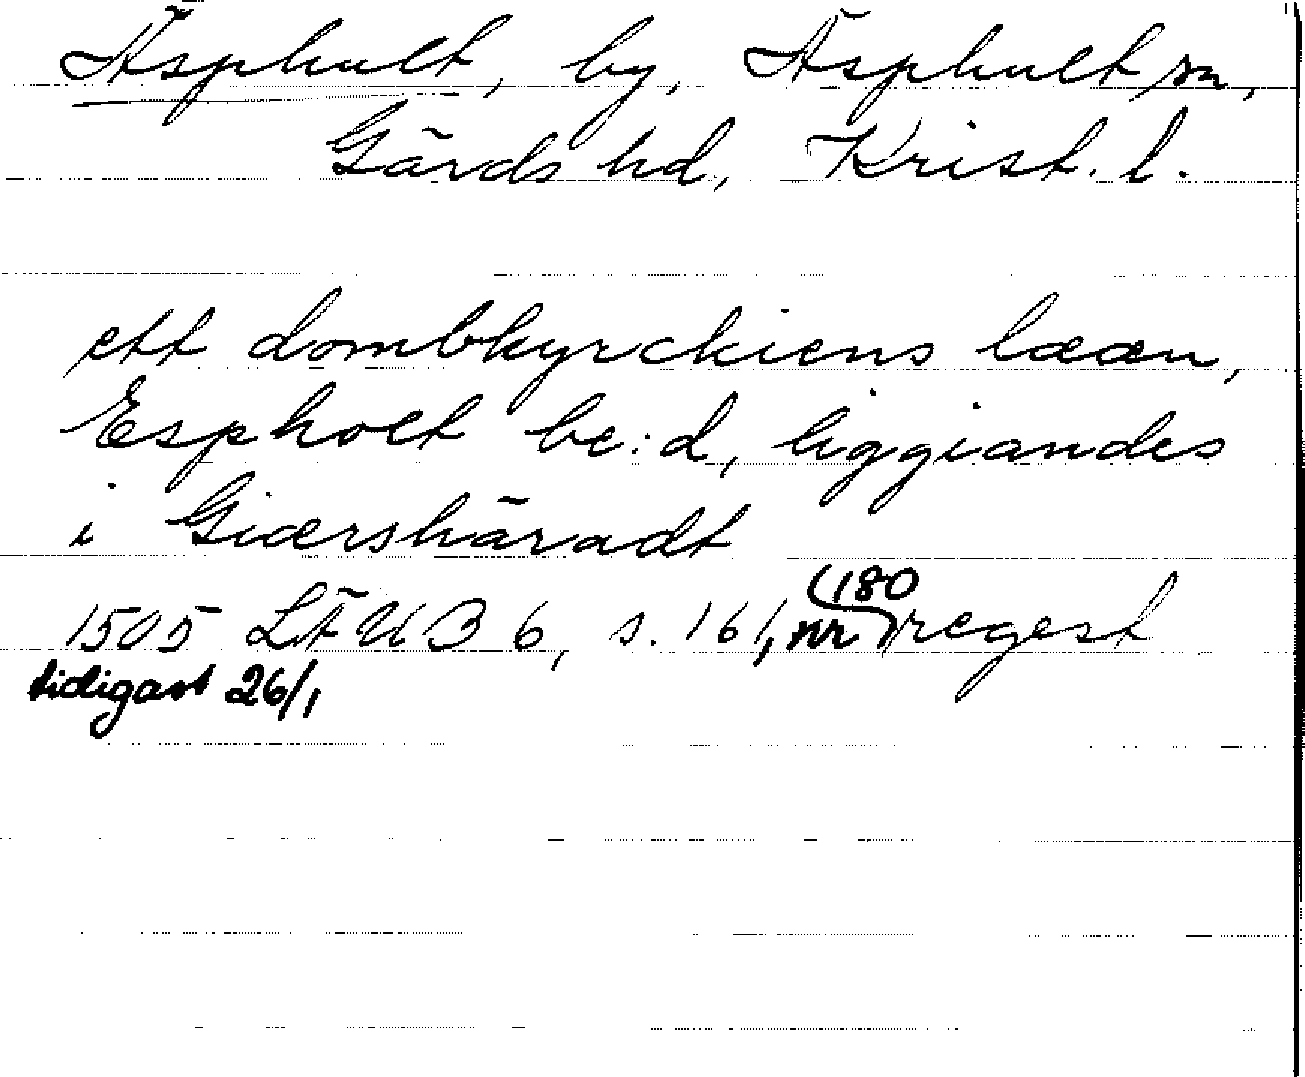 Äsphult, by, Äsphult sn,
Gärds hd, Krist. l.
ett dombkyrckiens lææn,
Espholt be:d, liggiandes
i Giærshäradt
1505 LÄUB 6, s. 161, nr 180 regest
tidigast 26/1